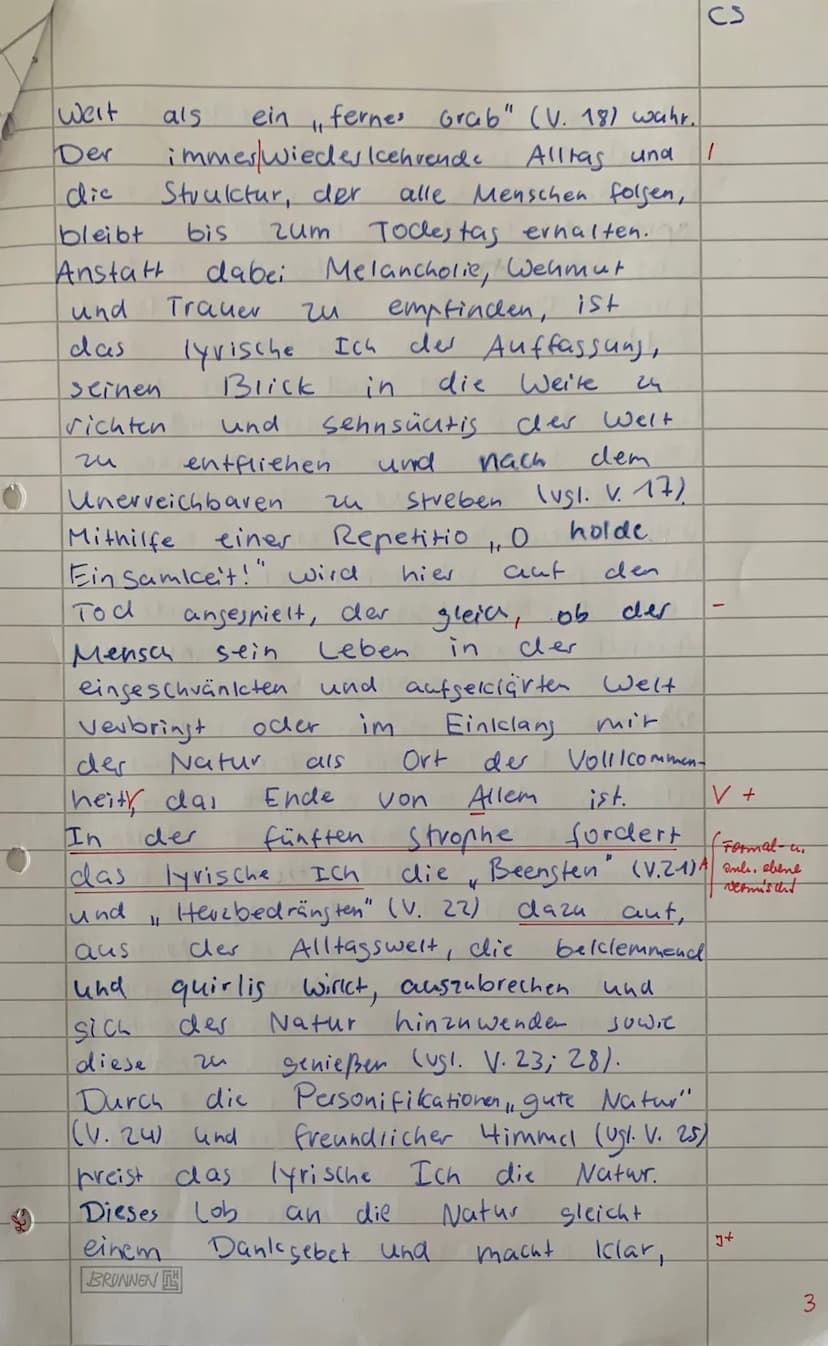 CS
Welt als ein „fernes Grab" (V. 18) wahr.
Der immer|wiederkehrende Alltag und |
die Struktur, der alle Menschen folgen,
bleibt bis zum Todestag erhalten.
Anstatt dabei Melancholie, Wehmut
und Trauer zu empfinden, ist
das lyrische Ich der Auffassung,
seinen Blick in die Weite zu
richten und sehnsüchtig der Welt
zu entfliehen und nach dem
Unerreichbaren zu streben (vgl. V. 17).
Mithilfe einer Repetitio „O holde
Einsamkeit!" wird hier auf den
Tod angespielt, der gleich, ob der -
Mensch sein Leben in der
eingeschränkten und aufgeklärten Welt
verbringt oder im Einklang mit
der Natur als Ort der Vollkommen-
heit, das Ende von Allem ist. V +
In der fünften Strophe fordert
das lyrische Ich die „Beengten" (V.21) A
Formal- u.
inh. ebene
vermischt
und „Herzbedrängten" (V. 22) dazu auf,
aus der Alltagswelt, die beklemmend
und quirlig wirkt, auszubrechen und
sich der Natur hinzuwenden sowie
diese zu genießen (vgl. V. 23; 28).
Durch die Personifikationen „gute Natur"
(V. 24) und freundlicher Himmel (vgl. V. 25)
preist das lyrische Ich die Natur.
Dieses Lob an die Natur gleicht
einem Dankgebet und macht klar,
BRUNNEN
3